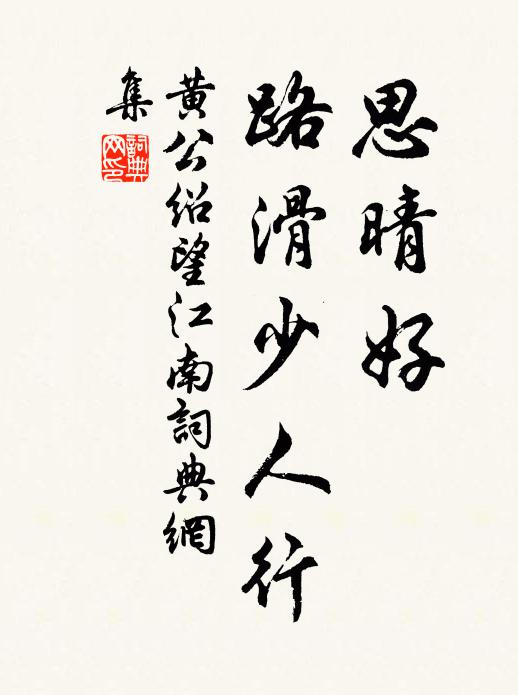 思晴好
路滑少人行
黄公绍望江南詞典網
集
詞典网印